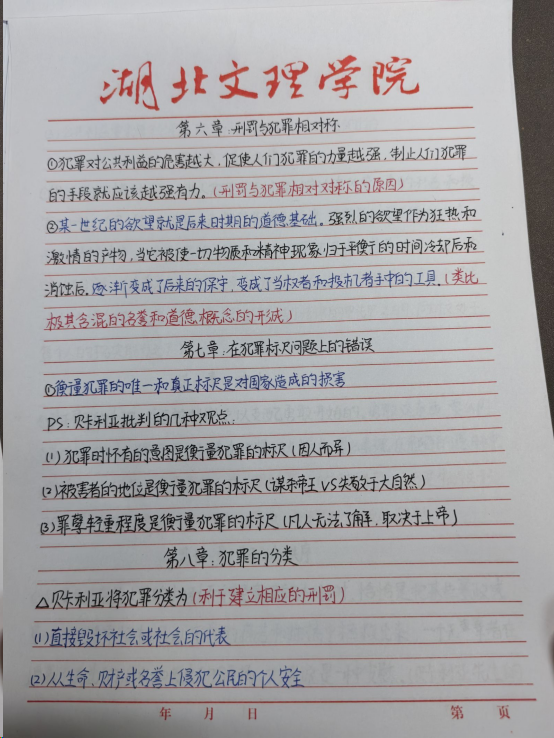 湖北文理学院
第六章:刑罚与犯罪相对称
①犯罪对公共利益的危害越大,促使人们犯罪的力量越强,制止人们犯罪
的手段就应该越强有力。(刑罚与犯罪相对对称的原因)
②某一世纪的欲望就是后来时期的道德基础。强烈的欲望作为狂热和
激情的产物,当它被使一切物质和精神现象归于平衡的时间冷却后和
消蚀后。逐渐变成了后来的保守,变成了当权者和投机者手中的工具。(类比
极其含混的名誉和道德概念的形成)
第七章:在犯罪标尺问题上的错误
①衡量犯罪的唯一和真正标尺是对国家造成的损害
PS:贝卡利亚批判的几种观点:
(1)犯罪时怀有的意图是衡量犯罪的标尺(因人而异)
(2)被害者的地位是衡量犯罪的标尺(谋杀帝王VS失敬于大自然)
(3)罪孽轻重程度是衡量犯罪的标尺(凡人无法了解,取决于上帝)
第八章:犯罪的分类
△贝卡利亚将犯罪分类为(利于建立相应的刑罚)
(1)直接毁坏社会或社会的代表
(2)从生命、财产或名誉上侵犯公民的个人安全
年 月 日 第 页